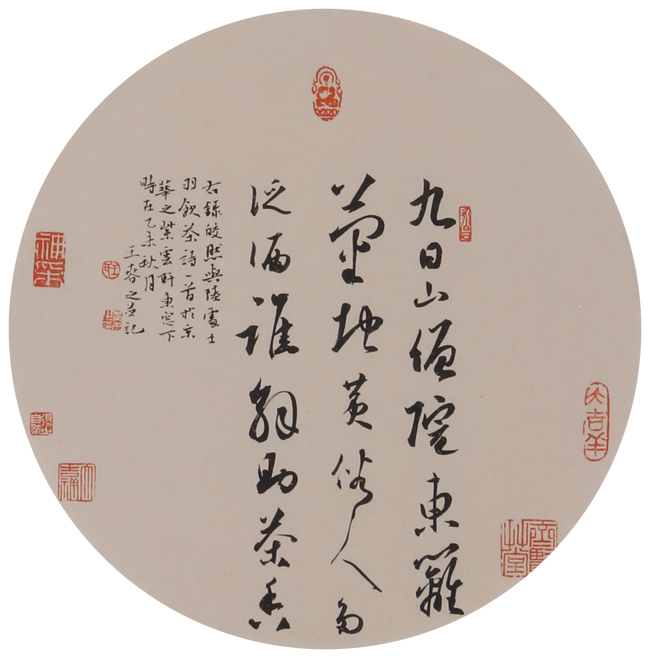 九日山僧院東籬
菊地黄俗人多
泛酒誰解助茶香
右錄皎然與陸處士
羽飲茶詩一首於京
華之紫雲軒東窓下
時在乙未秋月
王之並記
大吉羊